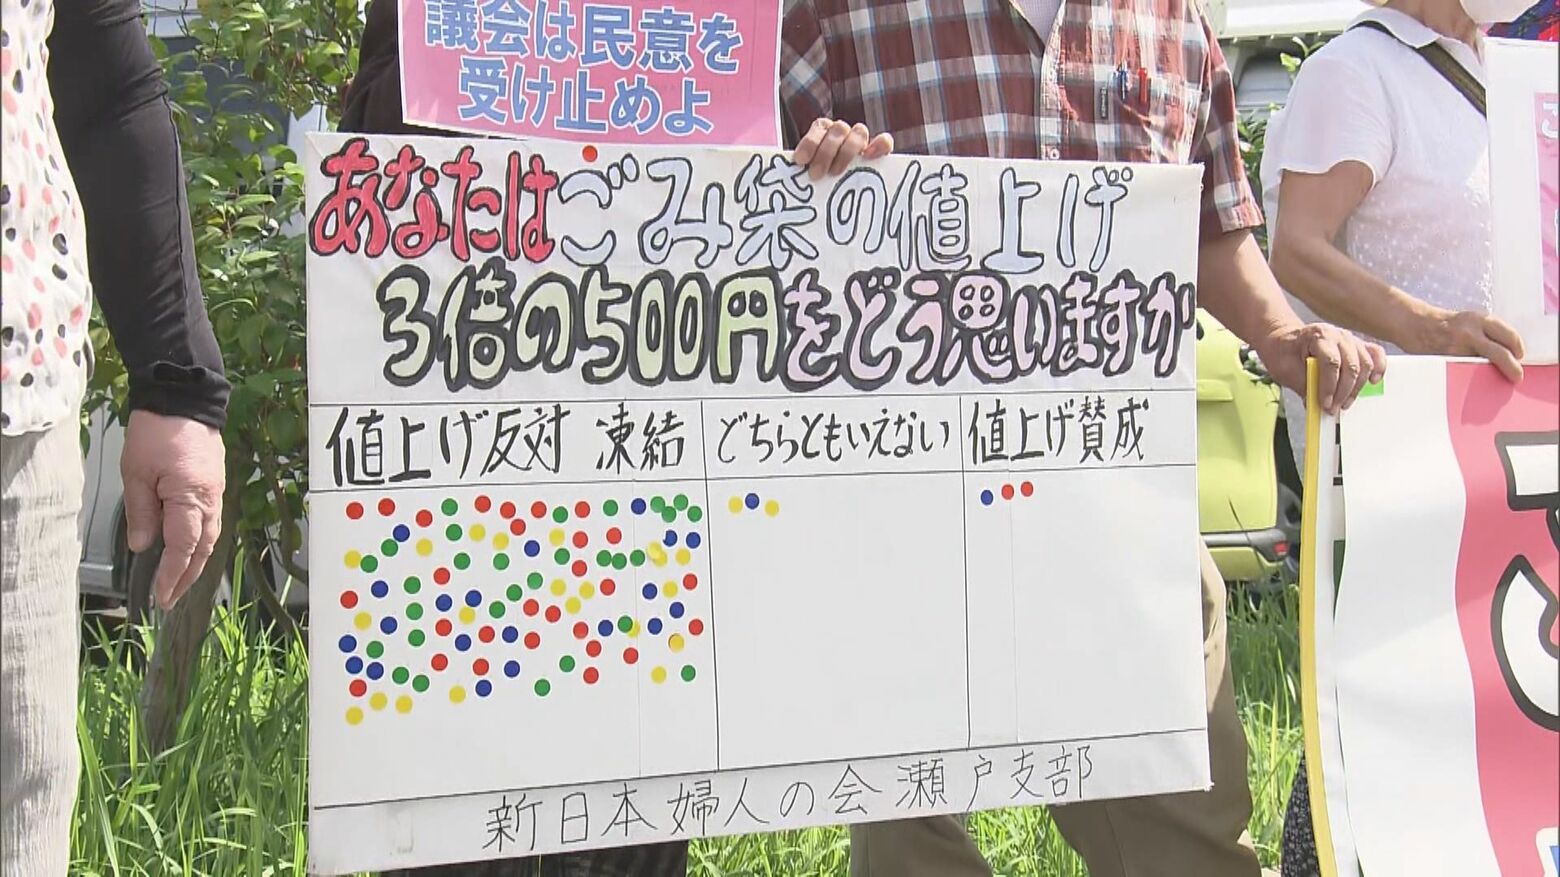 議会は民意を
受け止めよ
あなたはごみ袋の値上げ
3倍の500円をどう思いますか
値上げ反対 凍結
どちらともいえない
値上げ賛成
新日本婦人の会瀬戸支部